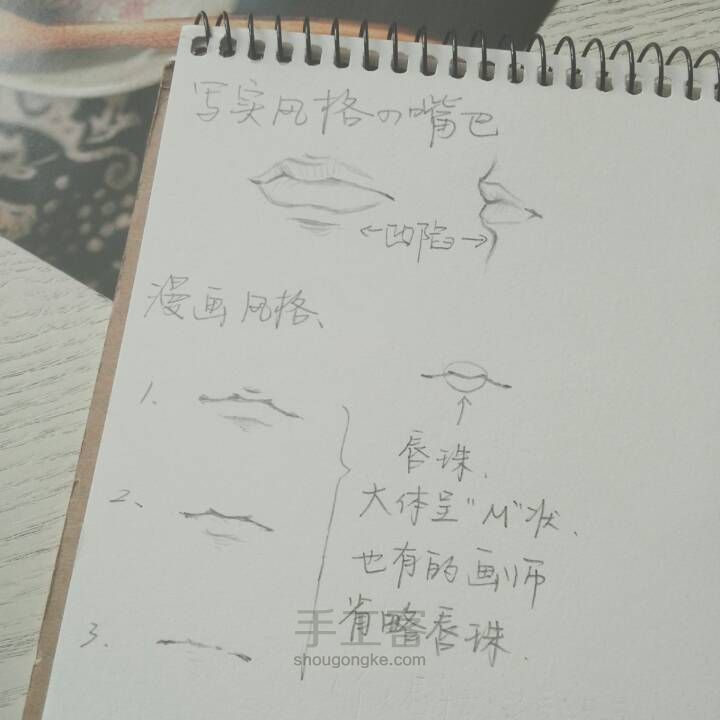 写实风格の嘴巴
←凹陷→
漫画风格、
1、
2、
3、
唇珠.
大体呈"M"状.
也有的画师
省略唇珠.
手工客
shougongke.com